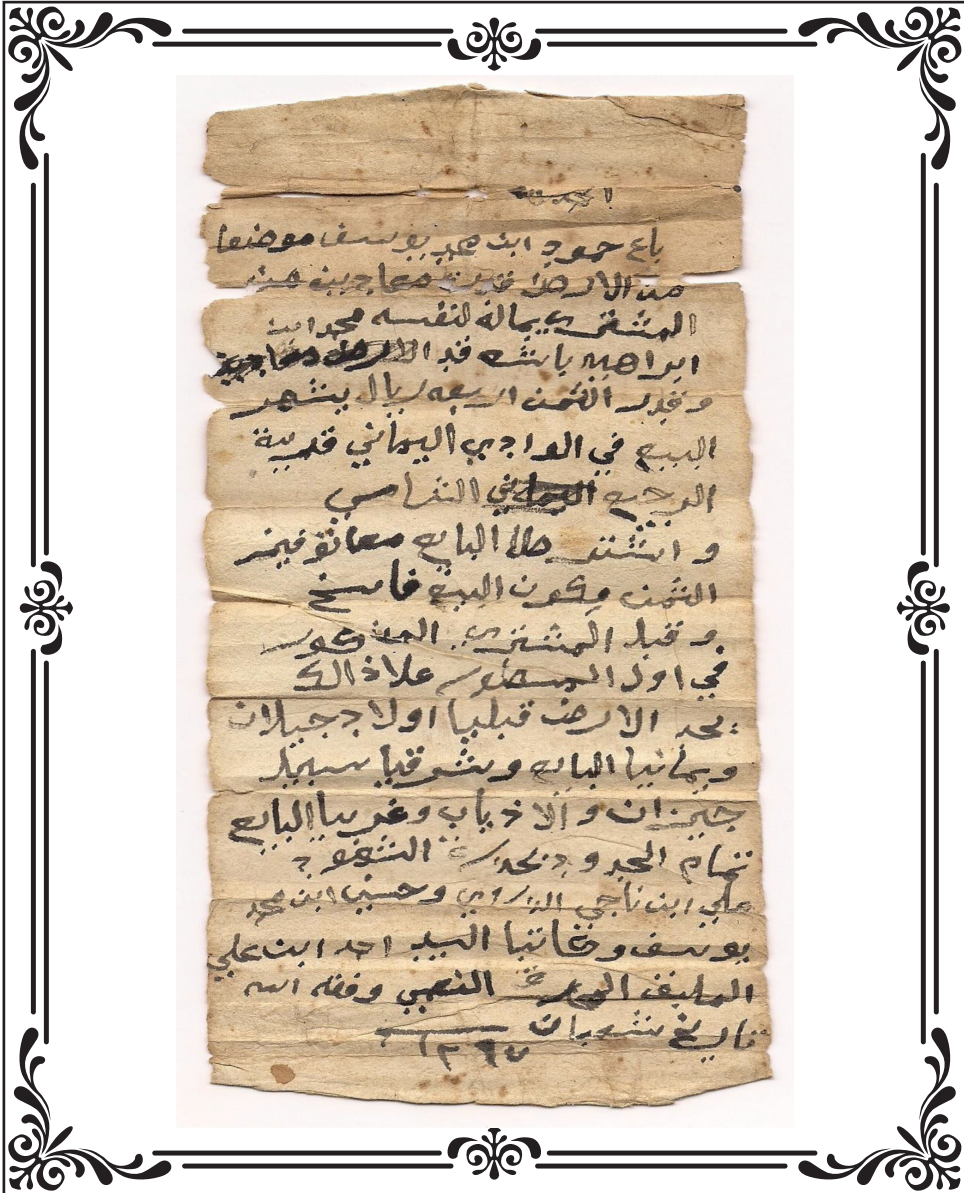 الحمد لله
باع حمود ابن محمد يوسف موضعا
من الارض قدره معادين من
المشتري بماله لنفسه محمد ابن
ابراهيم باشه قد الارض
وقدر الثمن اربعه ريال بشهر
البيع في الوادي اليماني قريبة
الرجيع اليماني
و اشتر البايع
الثمن يكون البيع فاسخ
وقبل المشتري المذكور
في اول المسطور علا ذالك
يحد الارض قبليا اولاد جبلان
ويمانيا البايع وشرقيا سبيل
جيزان و الاذياب وغربيا البايع
تمام الحدود الشهود
علي ابن ناجي وحسين ابن محمد
يوسف وكاتبا السيد احمد ابن علي
النعمي وفقه الله
تاريخ شعبان
١٣٦٧